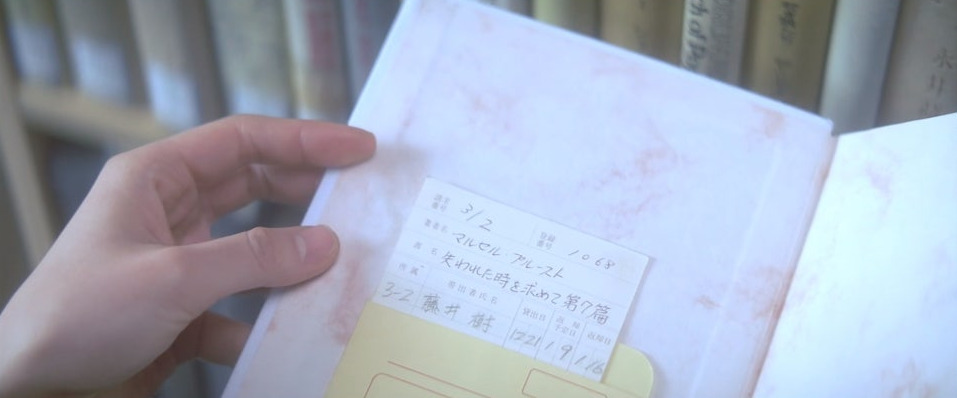 請求番号 3/2 登録番号 1068
著者名 マルセル・プルースト
書名 失われた時を求めて第7篇
所属 帯出者氏名 貸出日 返却予定日 返却日
3-2 藤井樹 12.21 1 9 1.16
永井